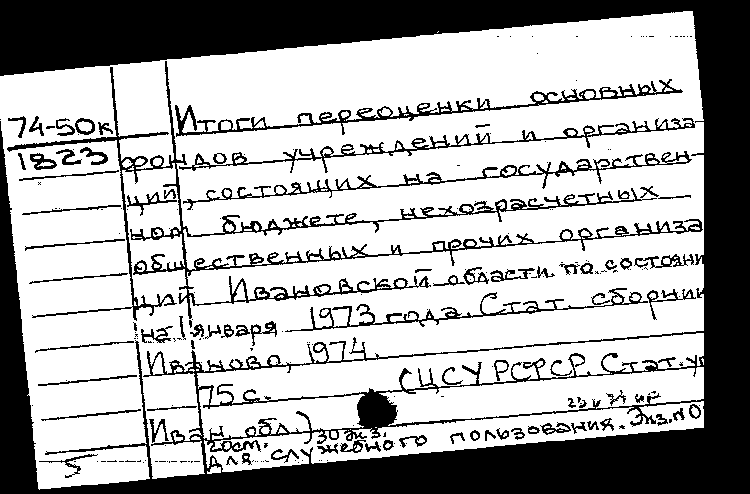 74-50к
1823
Итоги переоценки основных
фондов учреждений и организа-
ций, состоящих на государствен-
ном бюджете, нехозрасчетных
общественных и прочих организа
ций Ивановской области по состояни
на 1 января 1973 года. Стат. сборник
Иваново, 1974.
75 с. (ЦСУ РСФСР. Стат. уп
Иван. обл.) 30 экз.
20см.
Для служебного пользования. Экз. №0
5